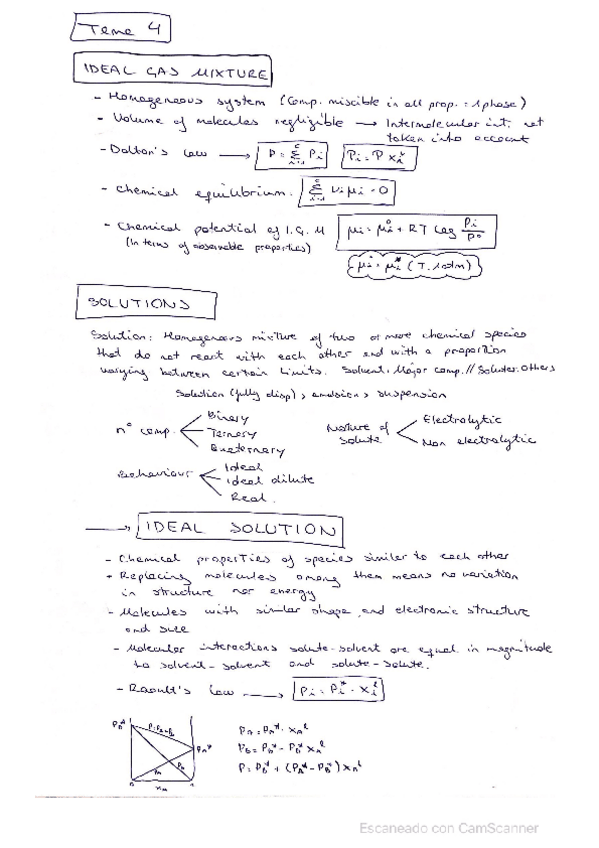 Tema 4
IDEAL GAS MIXTURE
- Homogeneous system (Comp. miscible in all prop. = 1 phase)
- Volume of molecules negligible → Intermolecular int. not
taken into account
- Dalton's law → P = Σ Pi Pi = P xi
- Chemical equilibrium. Σ νi μi = 0
- Chemical potential of I.G.M μi = μi° + RT log Pi/P°
(In terms of observable properties)
μi° = μi* (T, 1 atm)
SOLUTIONS
Solution: Homogeneous mixture of two or more chemical species
that do not react with each other and with a proportion
varying between certain limits. Solvent: Major comp. // Solutes: Others
Solution (fully disp) > emulsion > suspension
nº comp. Binary
Ternary
Quaternary
Nature of solute Electrolytic
Non electrolytic
Behaviour Ideal
Ideal dilute
Real.
→ IDEAL SOLUTION
- Chemical properties of species similar to each other
- Replacing molecules among them means no variation
in structure nor energy
- Molecules with similar shape, and electronic structure
and size
- Molecular interactions solute-solvent are equal in magnitude
to solvent-solvent and solute-solute.
- Raoult's law → Pi = Pi* · xi^l
PB* P = PA + PB PA*
PA PB
0 xA 1
PA = PA* · xA^l
PB = PB* - PB* xA^l
P = PB* + (PA* - PB*) xA^l
Escaneado con CamScanner